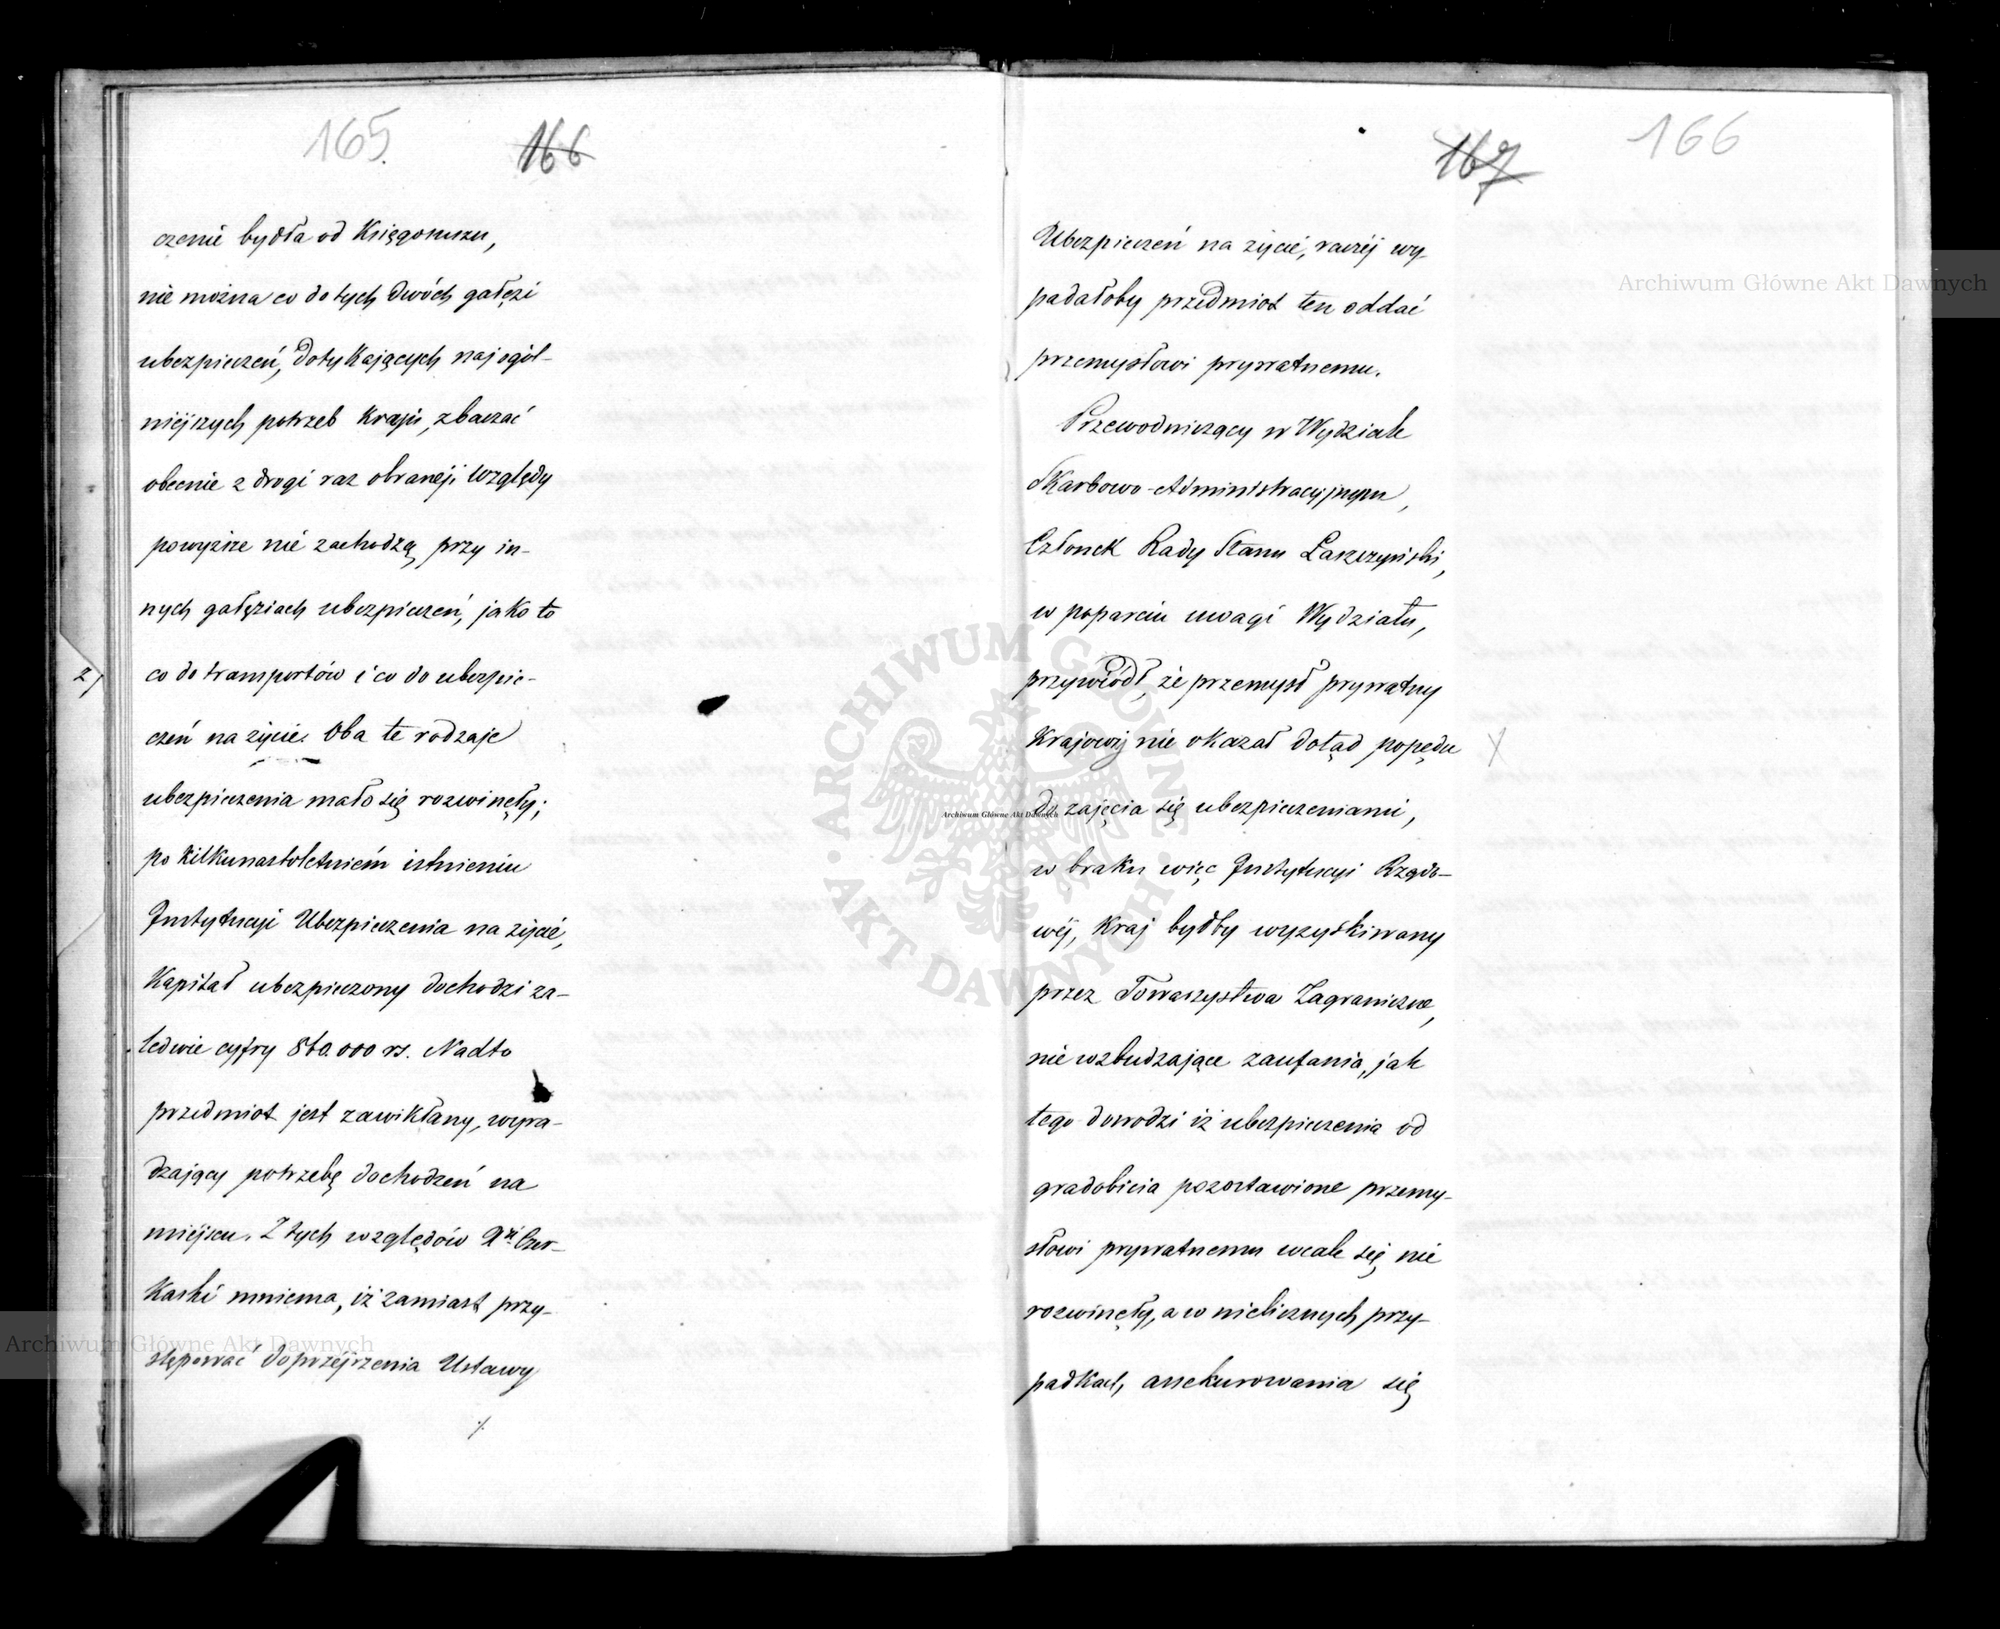 165. 166
czenie bydła od Księgosuszu,
nie można co do tych dwóch gałęzi
ubezpieczeń, dotykających najogól-
niéjszych potrzeb Kraju, zbaczać
obecnie z drogi raz obranéj. Względy
powyższe nie zachodzą przy in-
nych gałęziach ubezpieczeń, jako to
2) co do transportów i co do ubezpie-
czeń na życie. Oba te rodzaje
ubezpieczenia mało się rozwinęły;
po kilkunastoletniém istnieniu
Instytucyi Ubezpieczenia na życie,
Kapitał ubezpieczony dochodzi za-
ledwie cyfry 860.000 rs. Nadto
przedmiot jest zawikłany, wyra-
dzający potrzebę dochodzeń na
miéjscu. Z tych względów Czer-
kaski mniema, iż zamiast przy-
stępować do przéjrzenia Ustawy
./.
167 166
Ubezpieczeń na życie, raczéj wy-
padałoby przedmiot ten oddać
przemysłowi prywatnemu.
Przewodniczący w Wydziale
Skarbowo-Administracyjnym,
Członek Rady Stanu Łaszczyński,
w poparciu uwagi Wydziału,
przywiódł, że przemysł prywatny
Krajowy nie okazał dotąd popędu
do zajęcia się ubezpieczeniami,
w braku więc Instytucyi Rządo-
wéj, Kraj byłby wyzyskiwany
przez Towarzystwa Zagraniczne,
nie wzbudzające zaufania, jak
tego dowodzi iż ubezpieczenia od
gradobicia pozostawione przemy-
słowi prywatnemu wcale się nie
rozwinęły, a w nielicznych przy-
padkach, assekurowania się
Archiwum Główne Akt Dawnych
ARCHIWUM GŁÓWNE · AKT DAWNYCH ·
Archiwum Główne Akt Dawnych
Archiwum Główne Akt Dawnych